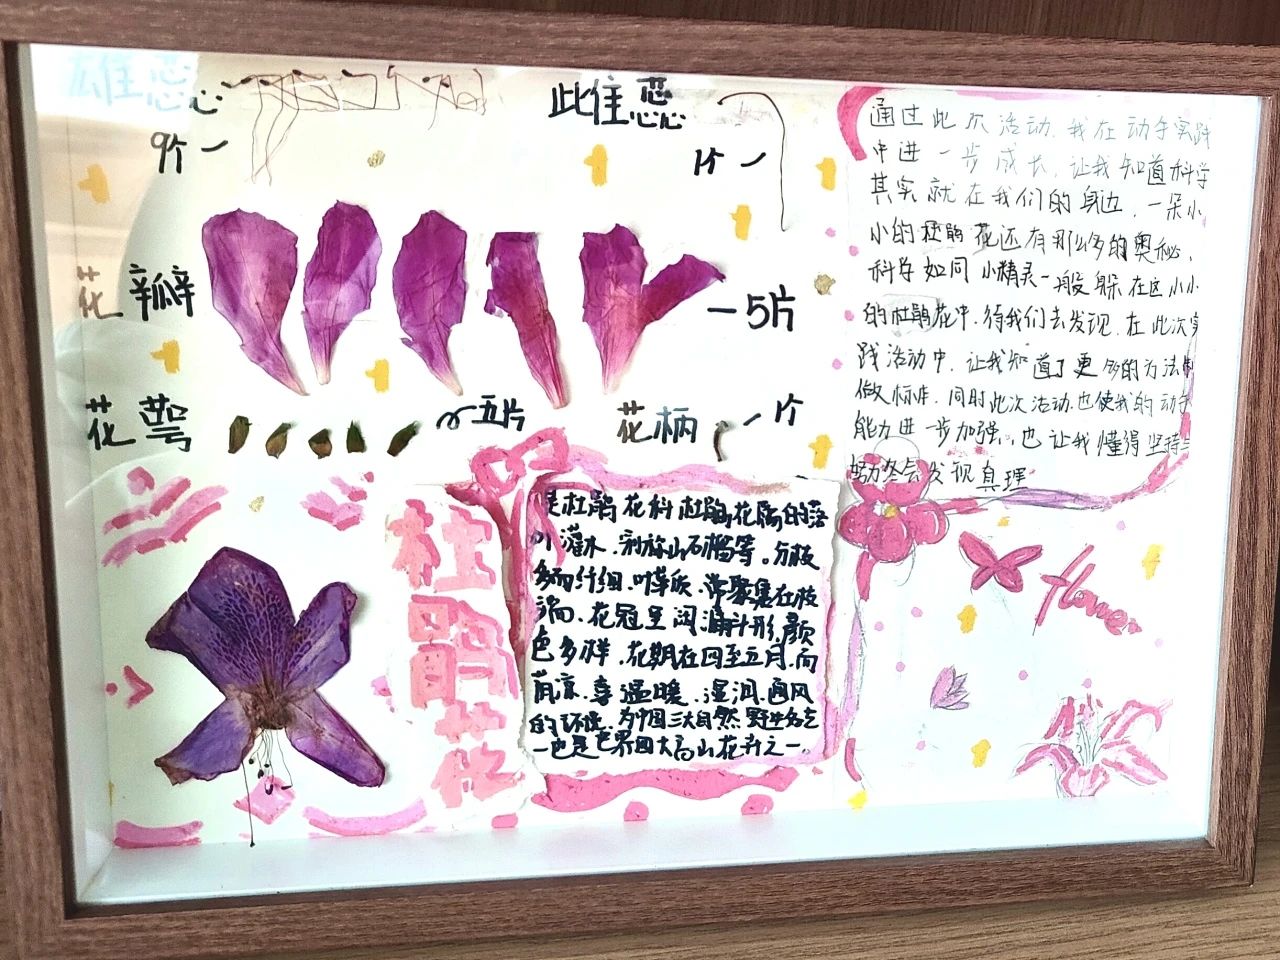 雄蕊
9个
此住蕊
1个
花瓣
5片
花萼
五片
花柄
1个
杜鹃花
是杜鹃花科杜鹃花属的落
叶灌木,别称山石榴等。分枝
多而纤细,叶革质,常聚集在枝
端,花冠呈阔漏斗形,颜
色多样,花期在四至五月,向
荫凉,喜温暖、湿润、通风
的环境,为中国三大自然野生名花
一也是世界四大高山花卉之一。
通过此次活动,我在动手实践
中进一步成长,让我知道科学
其实就在我们的身边,一朵小
小的杜鹃花还有那么多的奥秘,
科学如同小精灵一般躲在这小小
的杜鹃花中,待我们去发现,在此次实
践活动中,让我知道了更多的方法制
做标本,同时此次活动也使我的动手
能力进一步加强。也让我懂得坚持
努力冬会发现真理
flower